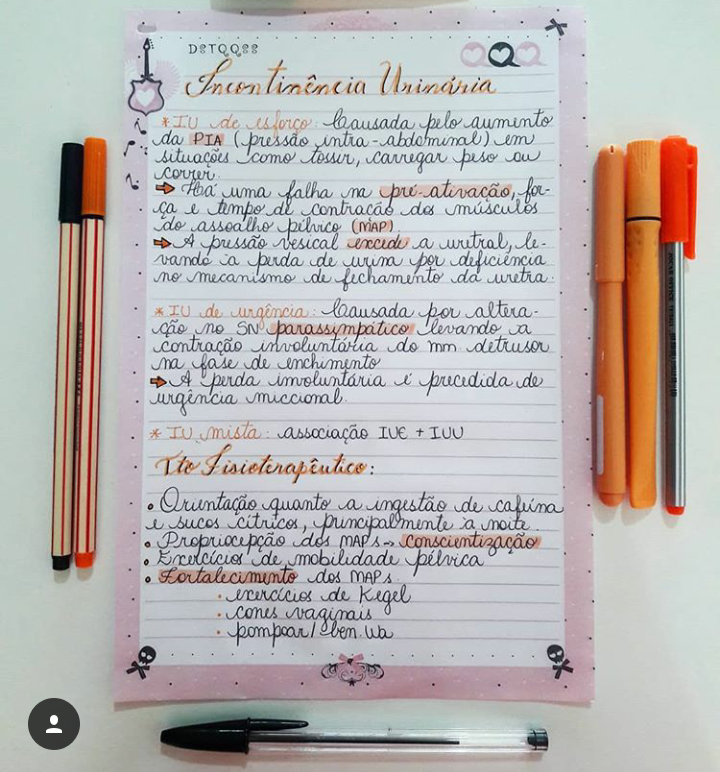 DSTQQSS
Incontinência Urinária
* IU de esforço: Causada pelo aumento
da PIA (pressão intra-abdominal) em
situações como tossir, carregar peso ou
correr.
⇨ Há uma falha na pré-ativação, for-
ça e tempo de contração dos músculos
do assoalho pélvico (MAP)
⇨ A pressão vesical excede a uretral, le-
vando à perda de urina por deficiência
no mecanismo de fechamento da uretra.
* IU de urgência: Causada por altera-
ção no SN parassimpático levando a
contração involuntária do mm detrusor
na fase de enchimento
⇨ A perda involuntária é precedida de
urgência miccional.
* IU mista: associação IUE + IUU
Tto Fisioterapêutico:
• Orientação quanto a ingestão de cafeína
e sucos cítricos, principalmente à noite.
• Propriocepção dos MAPs → conscientização
• Exercícios de mobilidade pélvica
• Fortalecimento dos MAPs.
• exercícios de Kegel
• cones vaginais
• pompoar/ ben.wa